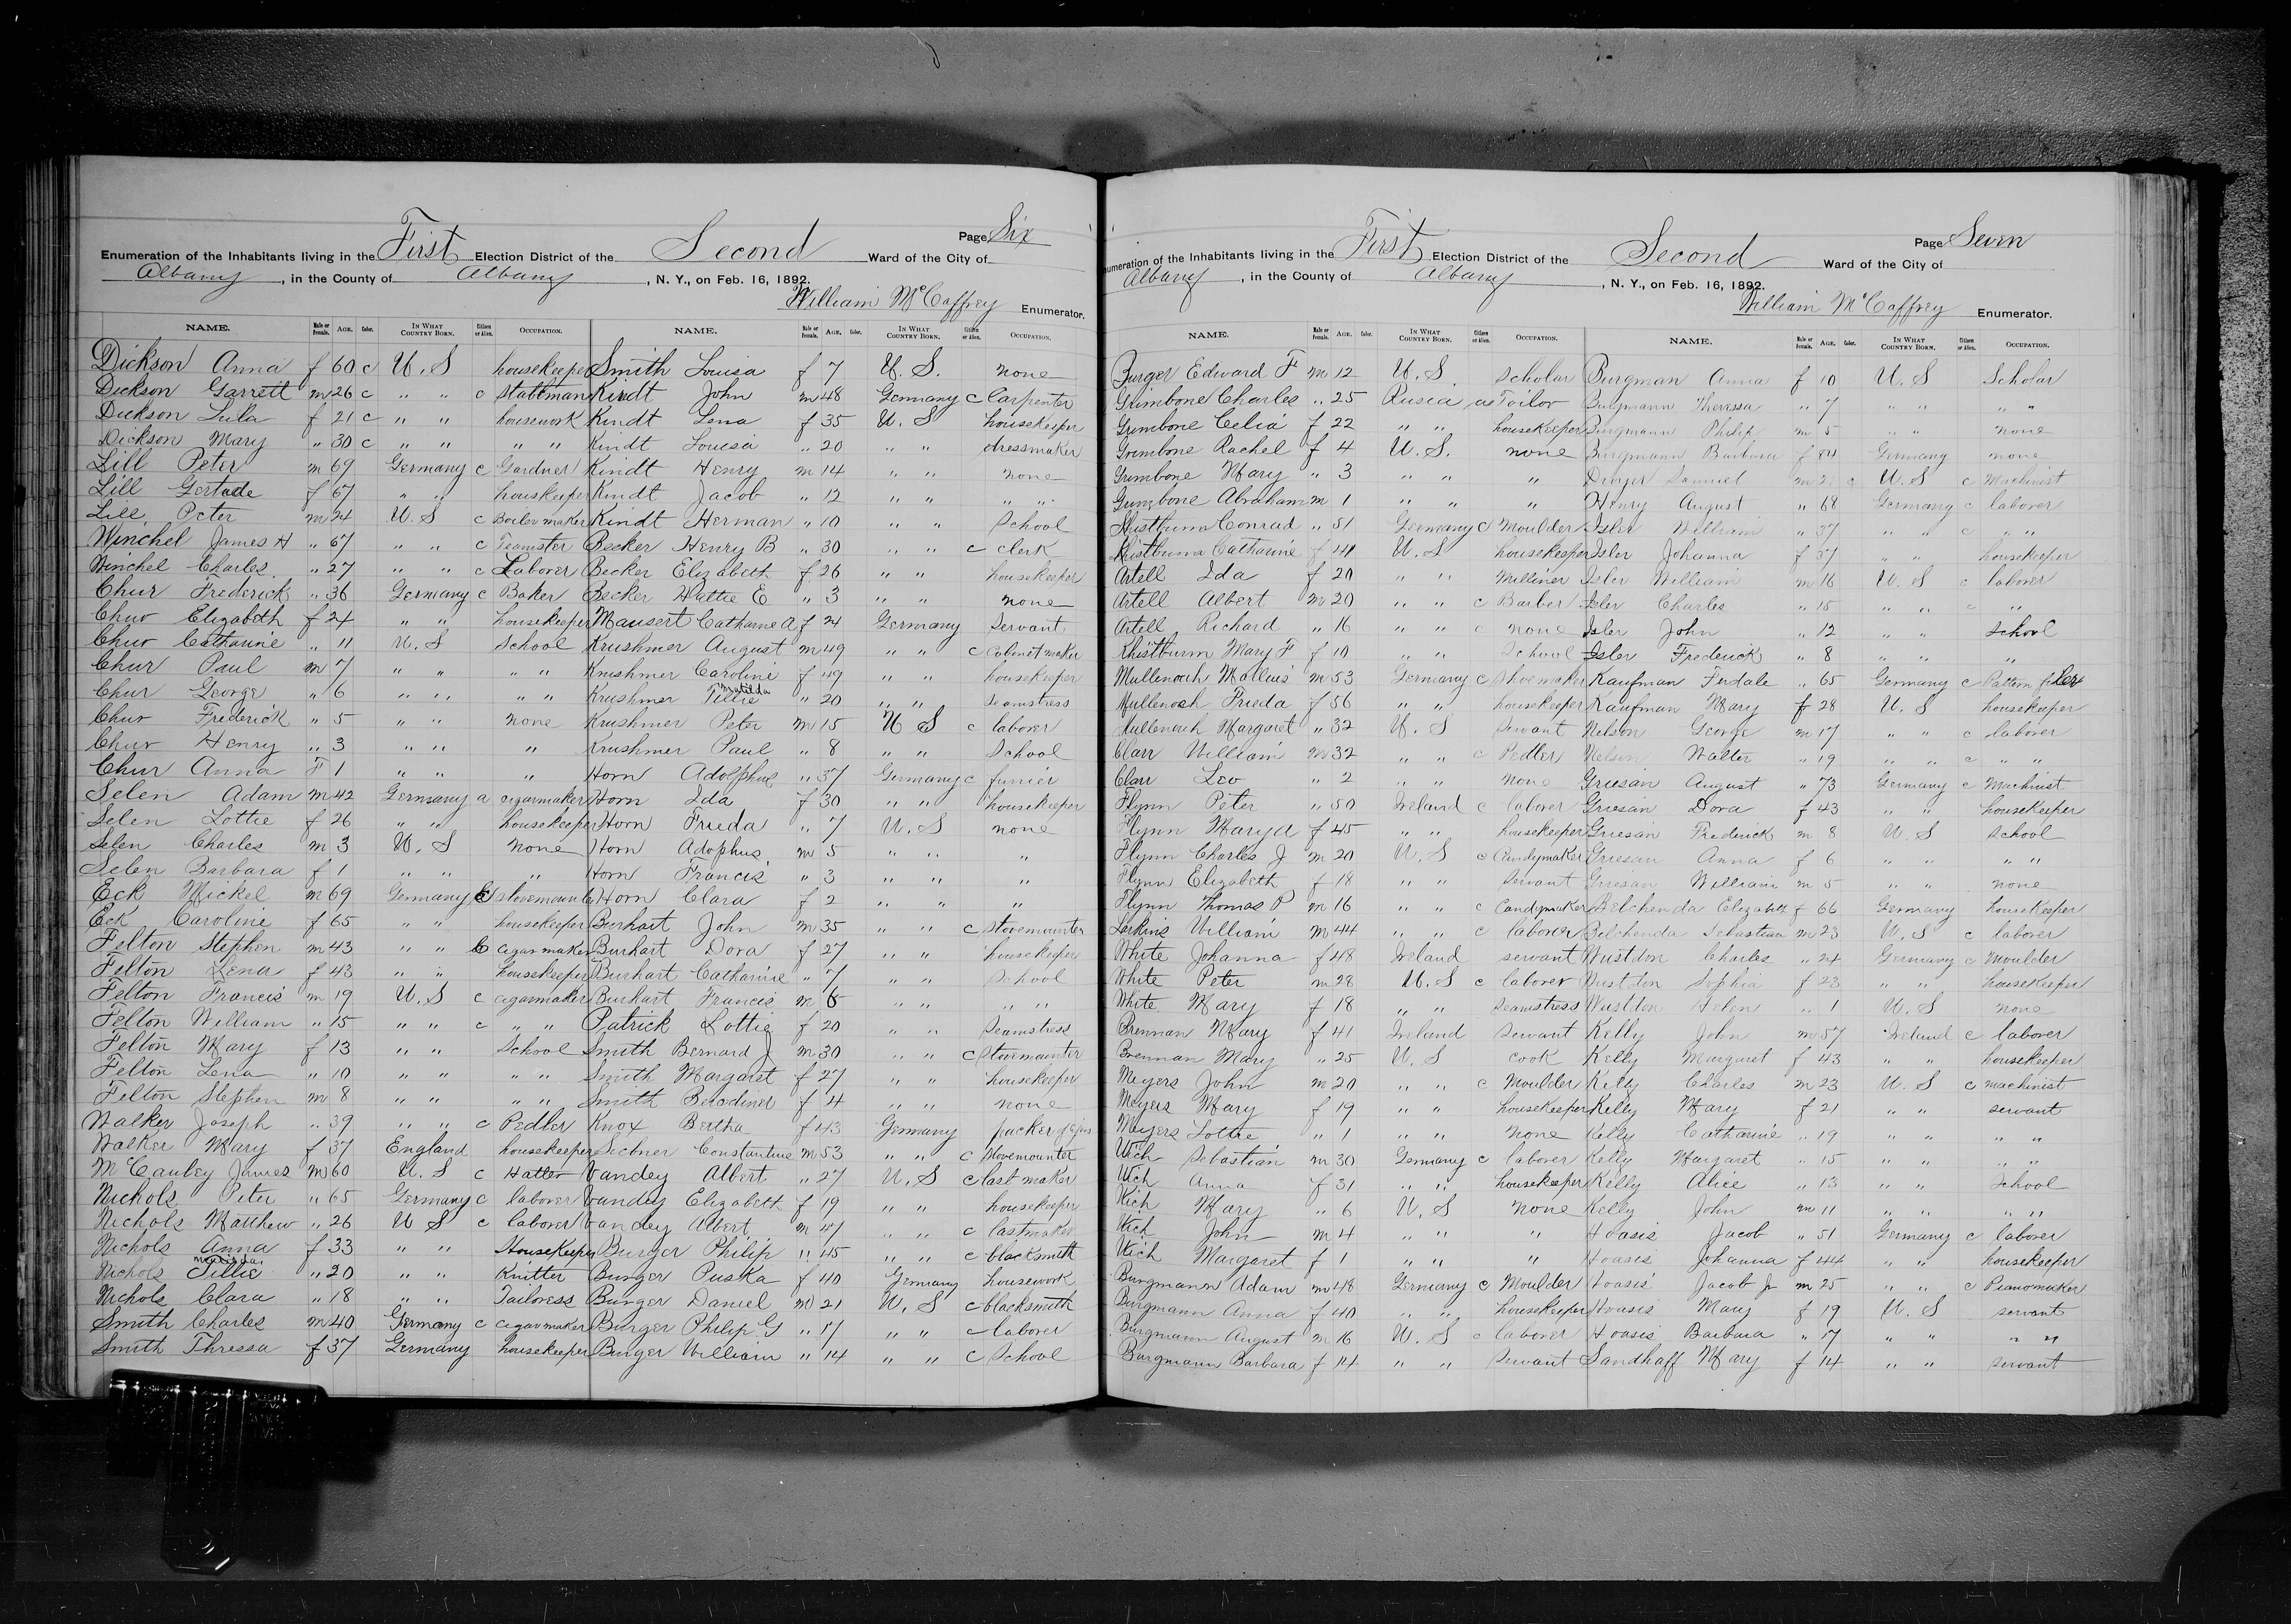 Page Six
Enumeration of the Inhabitants living in the First Election District of the Second Ward of the City of
Albany, in the County of Albany, N. Y., on Feb. 16, 1892.
William McCaffrey Enumerator.
NAME. Male or Female. AGE. Color. IN WHAT COUNTRY BORN. Citizen or Alien. OCCUPATION.
Dickson Anna f 60 c U. S housekeeper
Dickson Garrett m 26 c " " c stableman
Dickson Lula f 21 c " " housework
Dickson Mary " 30 c " " " "
Lill Peter m 69 Germany c Gardner
Lill Gertude f 67 " " houskeeper
Lill Peter m 24 U. S c Boiler maker
Winchel James H " 67 " " c Teamster
Winchel Charles " 27 " " c Laborer
Chur Frederick " 36 Germany c Baker
Chur Elizabeth f 24 " " housekeeper
Chur Catharine " 11 U. S School
Chur Paul m 7 " " " "
Chur George " 6 " " " "
Chur Frederick " 5 " " none
Chur Henry " 3 " " "
Chur Anna F 1 " " "
Selen Adam m 42 Germany a cigarmaker
Selen Lottie f 26 " " housekeeper
Selen Charles m 3 U. S none
Selen Barbara f 1 " " "
Eck Mickel m 69 Germany C stovemounter
Eck Caroline f 65 " " housekeeper
Felton Stephen m 43 " " C cigar maker
Felton Lena f 43 " " housekeeper
Felton Francis m 19 U. S c cigarmaker
Felton William " 15 " " c " "
Felton Mary f 13 " " School
Felton Lena " 10 " " " "
Felton Stephen m 8 " " " "
Walker Joseph " 39 " " c Pedler
Walker Mary f 37 England housekeeper
McCauley James m 60 U. S c Hatter
Nichols Peter " 65 Germany c laborer
Nichols Matthew " 26 U S c laborer
Nichols Anna f 33 " " HouseKeeper
Matilda
Nichols Tillie " 20 " " Knitter
Nichols Clara " 18 " " Tailoress
Smith Charles m 40 Germany c cigarmaker
Smith Thressa f 37 Germany housekeeper
NAME. Male or Female. AGE. Color. IN WHAT COUNTRY BORN. Citizen or Alien. OCCUPATION.
Smith Louisa f 7 U. S. none
Kindt John m 48 Germany c Carpenter
Kindt Lena f 35 U. S housekeeper
Kindt Louisa " 20 " " dressmaker
Kindt Henry m 14 " " none
Kindt Jacob " 12 " " " "
Kindt Herman " 10 " " School
Becker Henry B " 30 " " c clerk
Becker Elizabeth f 26 " " housekeeper
Becker Hattie E " 3 " " none
Mausert Catharne A f 24 Germany Servant
Krushmer August m 49 " " c Cabinet maker
Krushmer Caroline f 49 " " housekeeper
Matilda
Krushmer Tillie " 20 " " seamstress
Krushmer Peter m 15 U S c laborer
Krushmer Paul " 8 " " School
Horn Adolphus " 37 Germany c furrier
Horn Ida f 30 " " housekeeper
Horn Frieda " 7 U. S none
Horn Adophus m 5 " " "
Horn Francis " 3 " " "
Horn Clara f 2 " " "
Burhart John m 35 " " c stovemounter
Burhart Dora f 27 " " housekeeper
Burhart Catharine " 7 " " School
Burhart Francis m 6 " " " "
Patrick Lottie f 20 " " Seamstress
Smith Bernard J m 30 " " c Stovemounter
Smith Margaret f 27 " " housekeeper
Smith f 4 " " none
Knox Bertha f 43 Germany packer
Sechner Constantine m 53 " " c stovemounter
Vandey Albert " 27 U. S c last maker
Vandey Elizabeth f 19 " " housekeeper
Vandey Albert m 47 " " c lastmaker
Burger Philip " 45 " " c blacksmith
Burger Puska f 40 Germany housework
Burger Daniel m 21 U. S c blacksmith
Burger Philip G " 17 " " c laborer
Burger William " 14 " " c School
Page Seven
Enumeration of the Inhabitants living in the First Election District of the Second Ward of the City of
Albany, in the County of Albany, N. Y., on Feb. 16, 1892.
William McCaffrey Enumerator.
NAME. Male or Female. AGE. Color. IN WHAT COUNTRY BORN. Citizen or Alien. OCCUPATION.
Burger Edward F m 12 U. S. Scholar
Grimbone Charles " 25 Rusia as Tailor
Grimbone Celia f 22 " " housekeeper
Grimbone Rachel f 4 U. S. none
Grimbone Mary " 3 " " "
Grimbone Abraham m 1 " " "
Khistburm Conrad " 51 Germany c Moulder
Khistburm Catharine f 41 U. S housekeeper
Artell Ida f 20 " " Milliner
Artell Albert m 20 " " c Barber
Artell Richard " 16 " " c none
Khistburm Mary F f 10 " " School
Mullenoch Mollius m 53 Germany c Shoemaker
Mullenoch Frieda f 56 " " housekeeper
Mullenoch Margaret " 32 U. S servant
Clarr William m 32 " " c Pedler
Clarr Leo " 2 " " none
Flynn Peter " 50 Ireland c laborer
Flynn Mary A f 45 " " housekeeper
Flynn Charles J m 20 U. S c Candymaker
Flynn Elizabeth f 18 " " Servant
Flynn Thomas P m 16 " " c Candymaker
Larkins William m 44 " " c laborer
White Johanna f 48 Ireland servant
White Peter m 28 U. S c laborer
White Mary f 18 " " Seamstress
Brennan Mary f 41 Ireland Servant
Brennan Mary " 25 U. S cook
Meyers John m 20 " " c Moulder
Meyers Mary f 19 " " housekeeper
Meyers Lottie " 1 " " none
Wich Sebastian m 30 Germany c laborer
Wich Anna f 31 " " housekeeper
Wich Mary " 6 U. S none
Wich John m 4 " " "
Wich Margaret f 1 " " "
Burgmann Adam m 48 Germany c Moulder
Burgmann Anna f 40 " " housekeeper
Burgmann August m 16 U. S c laborer
Burgmann Barbara f 14 " " Servant
NAME. Male or Female. AGE. Color. IN WHAT COUNTRY BORN. Citizen or Alien. OCCUPATION.
Burgman Anna f 10 U. S Scholar
Burgmann Theressa " 7 " " " "
Burgmann Philip m 5 " " none
Burgmann Barbara f 84 Germany none
Dinger Samuel m U. S c Machinist
Henry August " 68 Germany c laborer
Isler William " 37 " " c " "
Isler Johanna f 37 " " housekeeper
Isler William m 16 U. S c laborer
Isler Charles " 15 " " c "
Isler John " 12 " " School
Isler Frederick " 8 " " "
Kaufman Ferdale " 65 Germany c Pattern filer
Kaufman Mary f 28 U. S housekeeper
Nelson George m 17 " " c laborer
Nelson Walter " 19 " " c " "
Griesan August " 73 Germany c Machinist
Griesan Dora f 43 " " housekeeper
Griesan Frederick m 8 U. S School
Griesan Anna f 6 " " " "
Griesan William m 5 " " none
Belchenda Elizabeth f 66 Germany housekeeper
Belchenda Sebastian m 23 U. S c laborer
Wustdon Charles " 24 Germany c Moulder
Wustdon Sophia f 23 " " housekeeper
Wustdon Helen " 1 U. S none
Kelly John m 57 Ireland c laborer
Kelly Margaret f 43 " " housekeeper
Kelly Charles m 23 U. S c machinist
Kelly Mary f 21 " " servant
Kelly Catharine " 19 " " " "
Kelly Margaret " 15 " " " "
Kelly Alice " 13 " " School
Kelly John m 11 " " " "
Hoasis Jacob " 51 Germany c laborer
Hoasis Johanna f 44 " " housekeeper
Hoasis Jacob Jr m 25 " " c Pianomaker
Hoasis Mary f 19 U. S servant
Hoasis Barbara " 17 " " " "
Sandhaff Mary f 14 " " servant